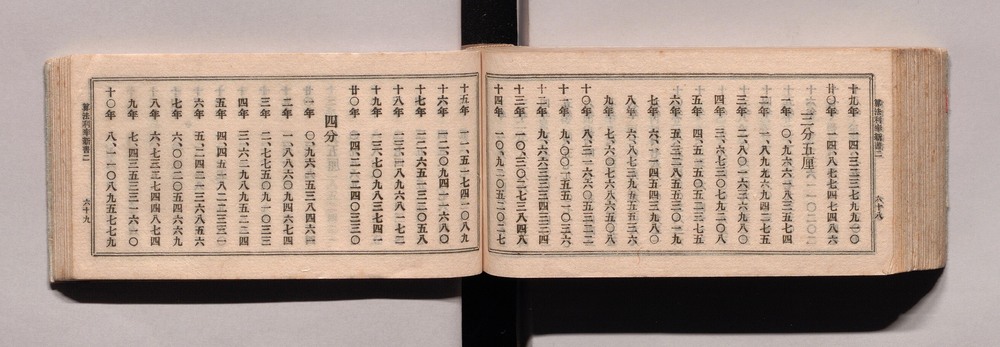 十九年 一四、三二三七九九一〇
廿〇年 一四、八七七四七四八六
三分五厘
一年 〇、九六六一八三五七四
二年 一、八九九六九四二七五
三年 二、八〇一六三六九八〇
四年 三、六七三〇七九二〇八
五年 四、五一五〇五二三七五
六年 五、三二八五五三〇一九
七年 六、一一四五四三九八〇
八年 六、八七三九五五五三六
九年 七、六〇七六八六五〇八
十〇年 八、三一六六〇五三二二
十一年 九、〇〇一五五一〇三六
十二年 九、六六三三三四三三四
十三年 一〇、三〇二七三八四八
十四年 一〇、九二〇五二〇二七
算法利率新書二
六十八
十五年 一一、五一七四一〇八九
十六年 一二、〇九四一一六八〇
十七年 一二、六五一三二〇五八
十八年 一三、一八九六八一七二
十九年 一三、七〇九八三七四一
廿〇年 一四、二一二四〇三三〇
四分
一年 〇、九六一五三八四六二
二年 一、八八六〇九四六七四
三年 二、七七五〇九一〇三三
四年 三、六二九八九五二二四
五年 四、四五一八二二三三一
六年 五、二四二一三六八五六
七年 六、〇〇二〇五四六六九
八年 六、七三二七四四八七五
九年 七、四三五三三一六一〇
十〇年 八、一一〇八九五七七九
算法利率新書二
六十九